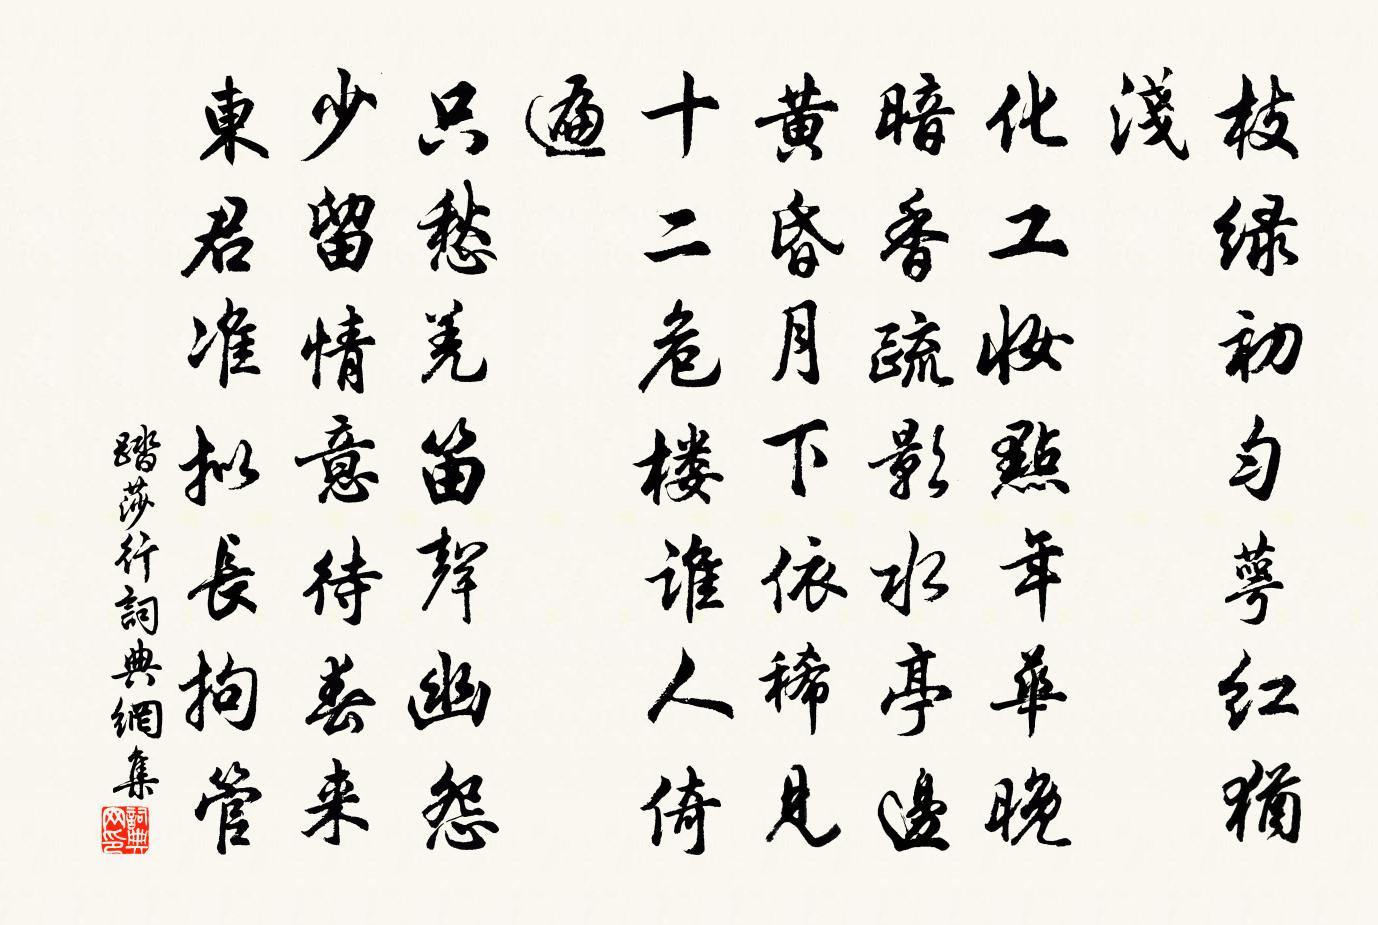 枝绿初匀萼红猶
淺
化工妝點年華晚
暗香疏影水亭邊
黄昏月下依稀見
十二危楼誰人倚
遍
只愁羌笛聲幽怨
少留情意待春来
東君准拟長拘管
踏莎行詞典網集
詞典
网印